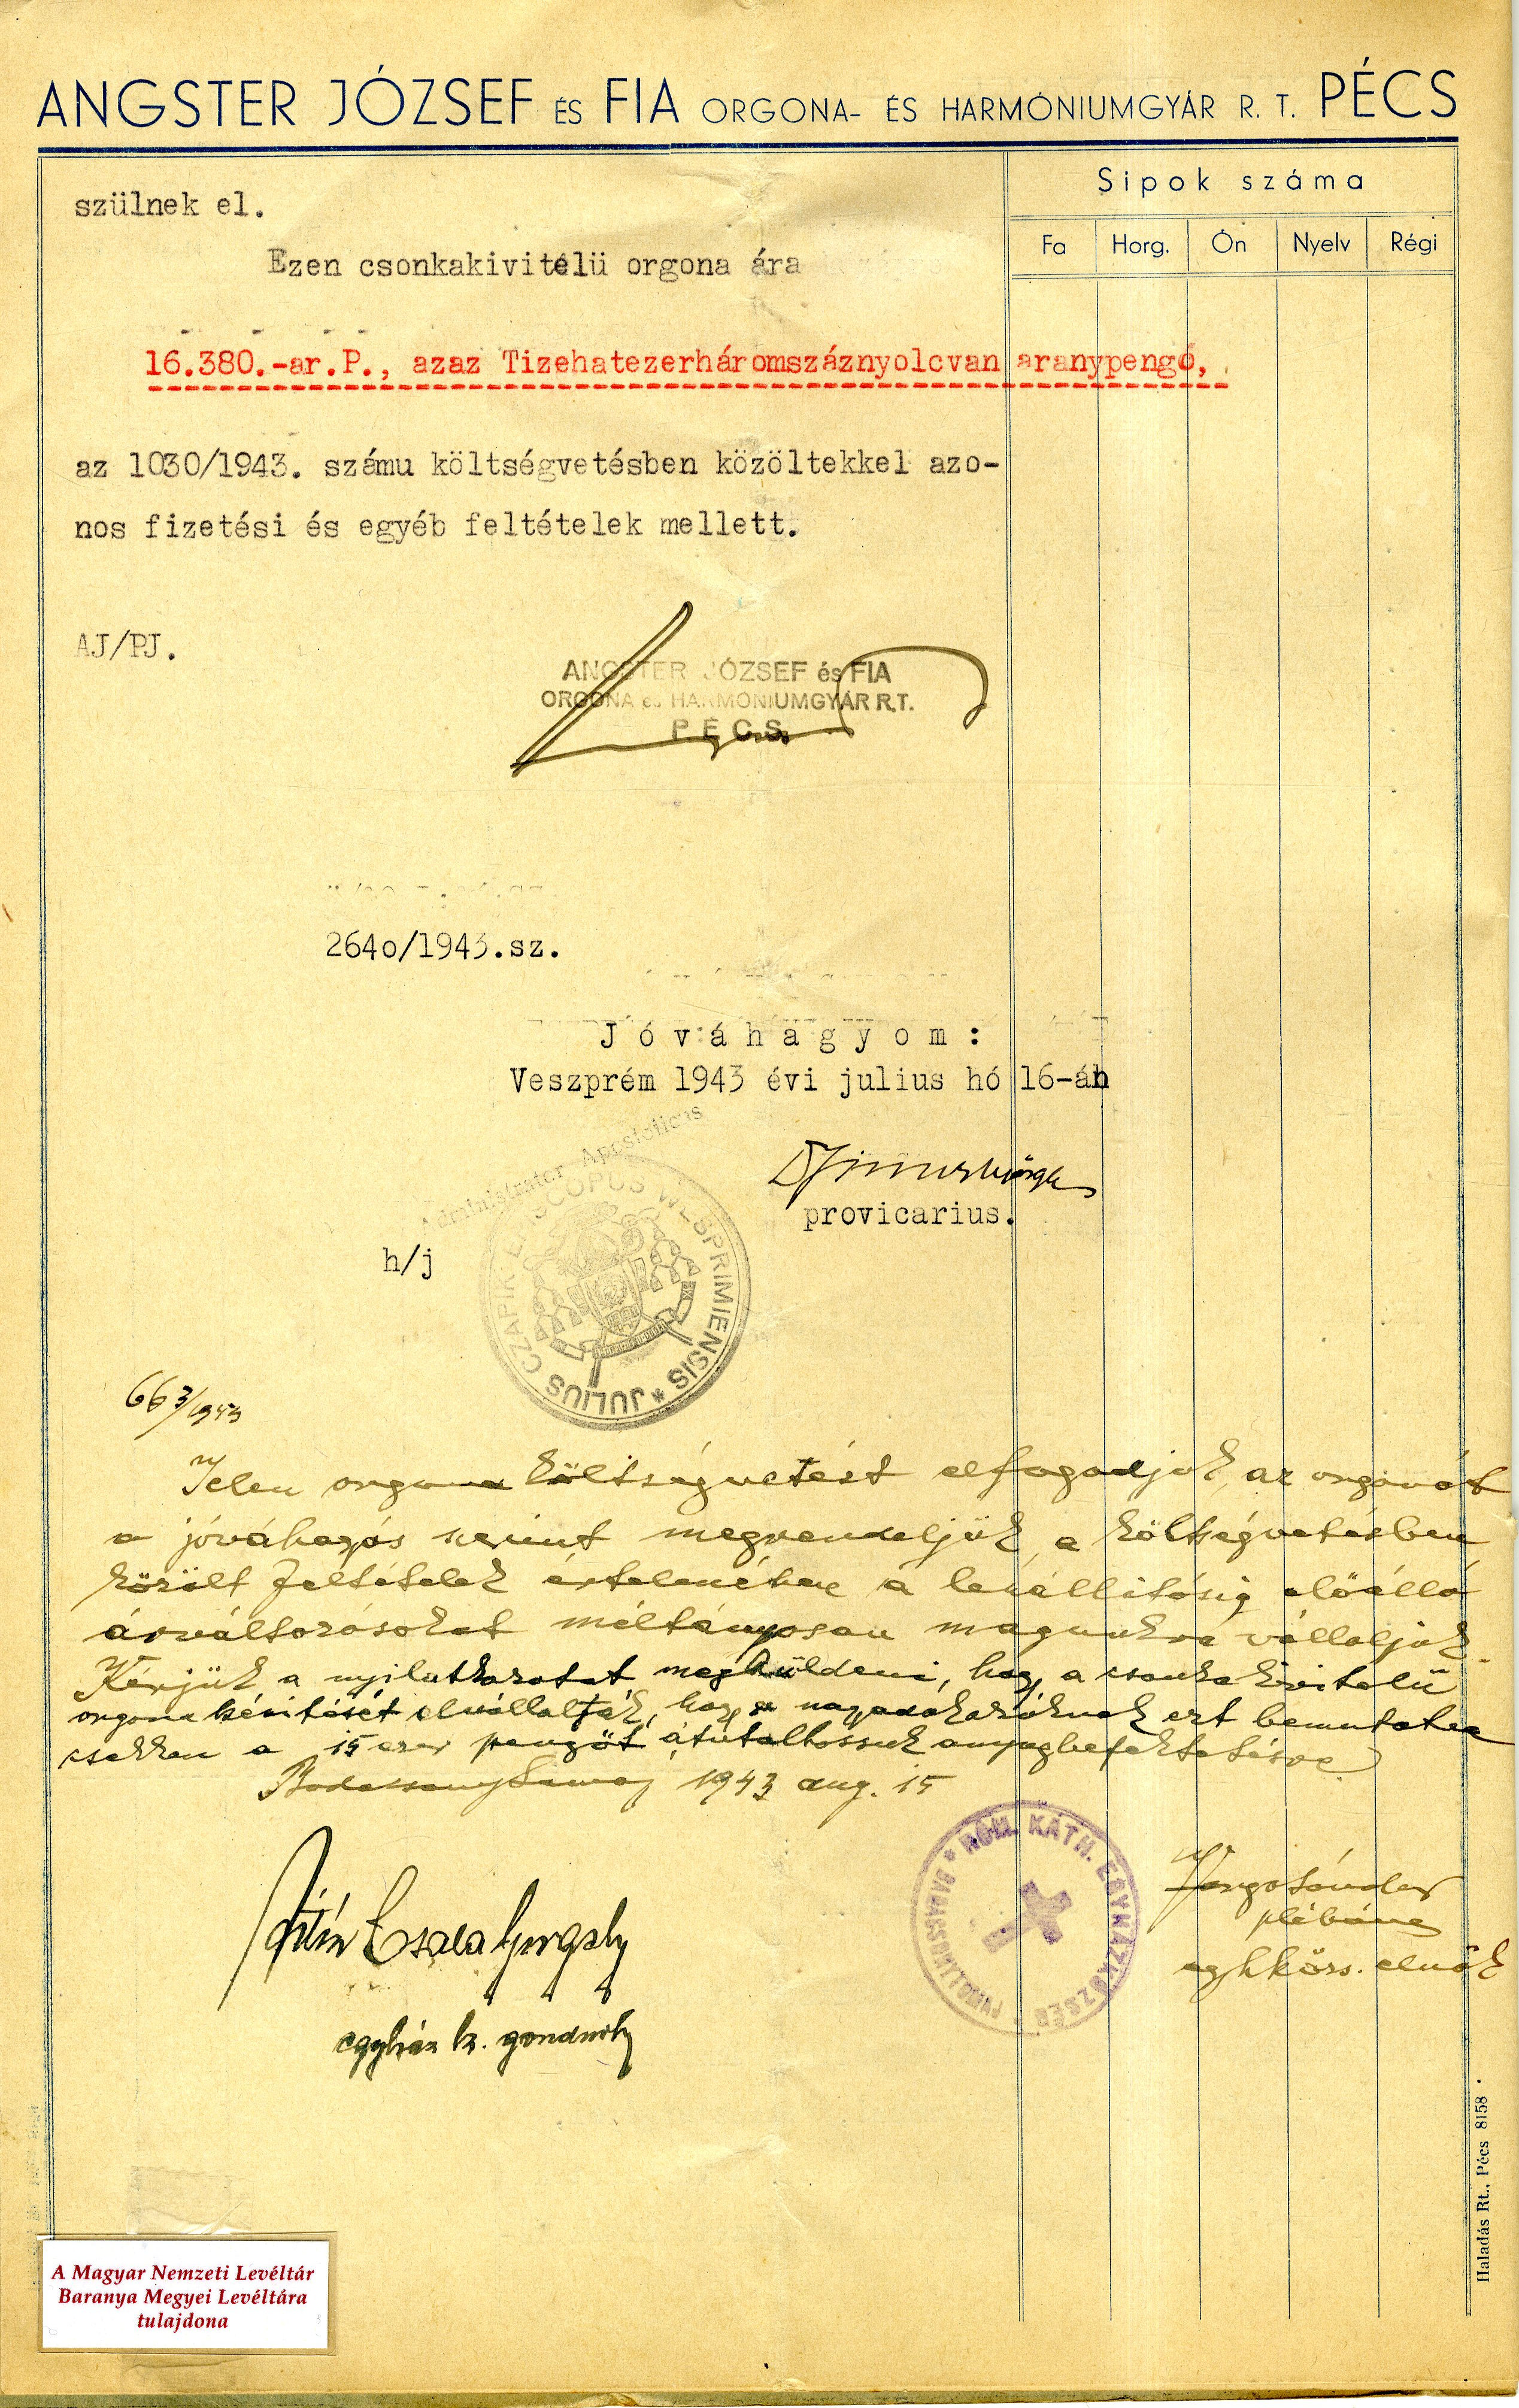 ANGSTER JÓZSEF ÉS FIA ORGONA- ÉS HARMÓNIUMGYÁR R. T. PÉCS
Sipok száma
Fa Horg. Ón Nyelv Régi
szülnek el.
Ezen csonkakivitelü orgona ára
16.380.-ar.P., azaz Tizehatezerháromszáznyolcvan aranypengő,
az 1030/1943. számu költségvetésben közöltekkel azo-
nos fizetési és egyéb feltételek mellett.
AJ/PJ.
ANGSTER JÓZSEF és FIA
ORGONA és HARMÓNIUMGYÁR R.T.
PÉCS.
264o/1943.sz.
Jóváhagyom:
Veszprém 1943 évi julius hó 16-án
provicarius.
Administrator Apostolicus
JULIUS CZAPIK EPISCOPUS WESPRIMIENSIS
h/j
663/1943
Jelen orgona költségvetést elfogadjuk, az orgonát
a jóváhagyás szerint megrendeljük, a költségvetésben
közölt feltételek értelmében a leszállitásig előálló
árváltozásokat méltányosan magunkra vállaljuk.
Kérjük a nyilatkozatot megküldeni, hogy a csonka kivitelü
orgona készitését elvállalták, hogy a nagyadakozóknak ezt bemutatva
csekken a 15 ezer pengőt átutalhossuk anyagbefektetésre.
1943 aug. 15
RÓM. KATH. EGYHÁZKÖZSÉG BADACSONYTOMAJ
Varga Sándor
plébános
egyhközs. elnök
Gergely
egyház k. gondnok
Haladás Rt., Pécs 8158
A Magyar Nemzeti Levéltár
Baranya Megyei Levéltára
tulajdona